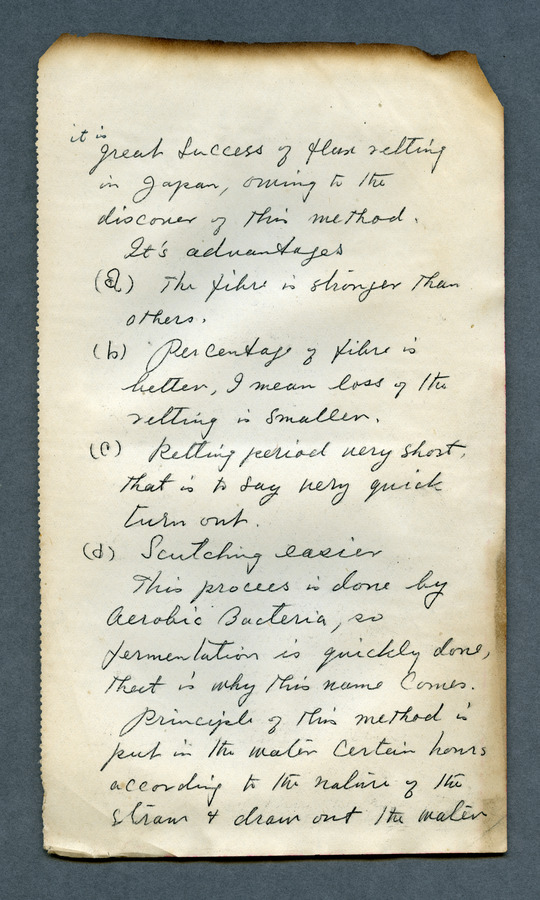 it is
great success of flax retting
in Japan, owing to the
discover of this method.
It's advantages
(a) The fibre is stronger than
others.
(b) Percentage of fibre is
better, I mean loss of the
retting is smaller.
(c) Retting period very short,
that is to say very quick
turn out.
(d) Scutching easier
This procees is done by
Aerobic Bacteria, so
fermentation is quickly done,
that is why this name comes.
Principle of this method is
put in the water certain hours
according to the nature of the
straw & draw out the water